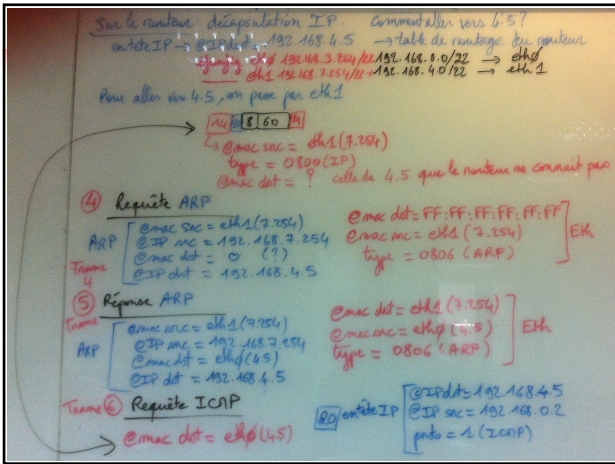 Sur le routeur : décapsulation IP. Comment aller vers 4.5 ?
entête IP → @IP dst = 192.168.4.5 → table de routage du routeur
eth0 192.168.3.254/22 192.168.0.0/22 → eth0
eth1 192.168.7.254/22 192.168.4.0/22 → eth1
Pour aller vers 4.5, on passe par eth1
14 20 8 60 4
↳ @mac src = eth1 (7.254)
type = 0800 (IP)
@mac dst = ? celle de 4.5 que le routeur ne connait pas
④ Requête ARP
ARP
@mac src = eth1 (7.254)
@IP src = 192.168.7.254
@mac dst = 0 (?)
@IP dst = 192.168.4.5
Trame 4
@mac dst = FF:FF:FF:FF:FF:FF
@mac src = eth1 (7.254)
type = 0806 (ARP)
Eth
⑤ Réponse ARP
Trame
ARP
@mac src = eth1 (7.254)
@IP src = 192.168.7.254
@mac dst = eth0 (4.5)
@IP dst = 192.168.4.5
@mac dst = eth1 (7.254)
@mac src = eth0 (4.5)
type = 0806 (ARP)
Eth
Trame ⑥ Requête ICMP
@mac dst = eth0 (4.5)
20 entête IP
@IP dst = 192.168.4.5
@IP src = 192.168.0.2
proto = 1 (ICMP)